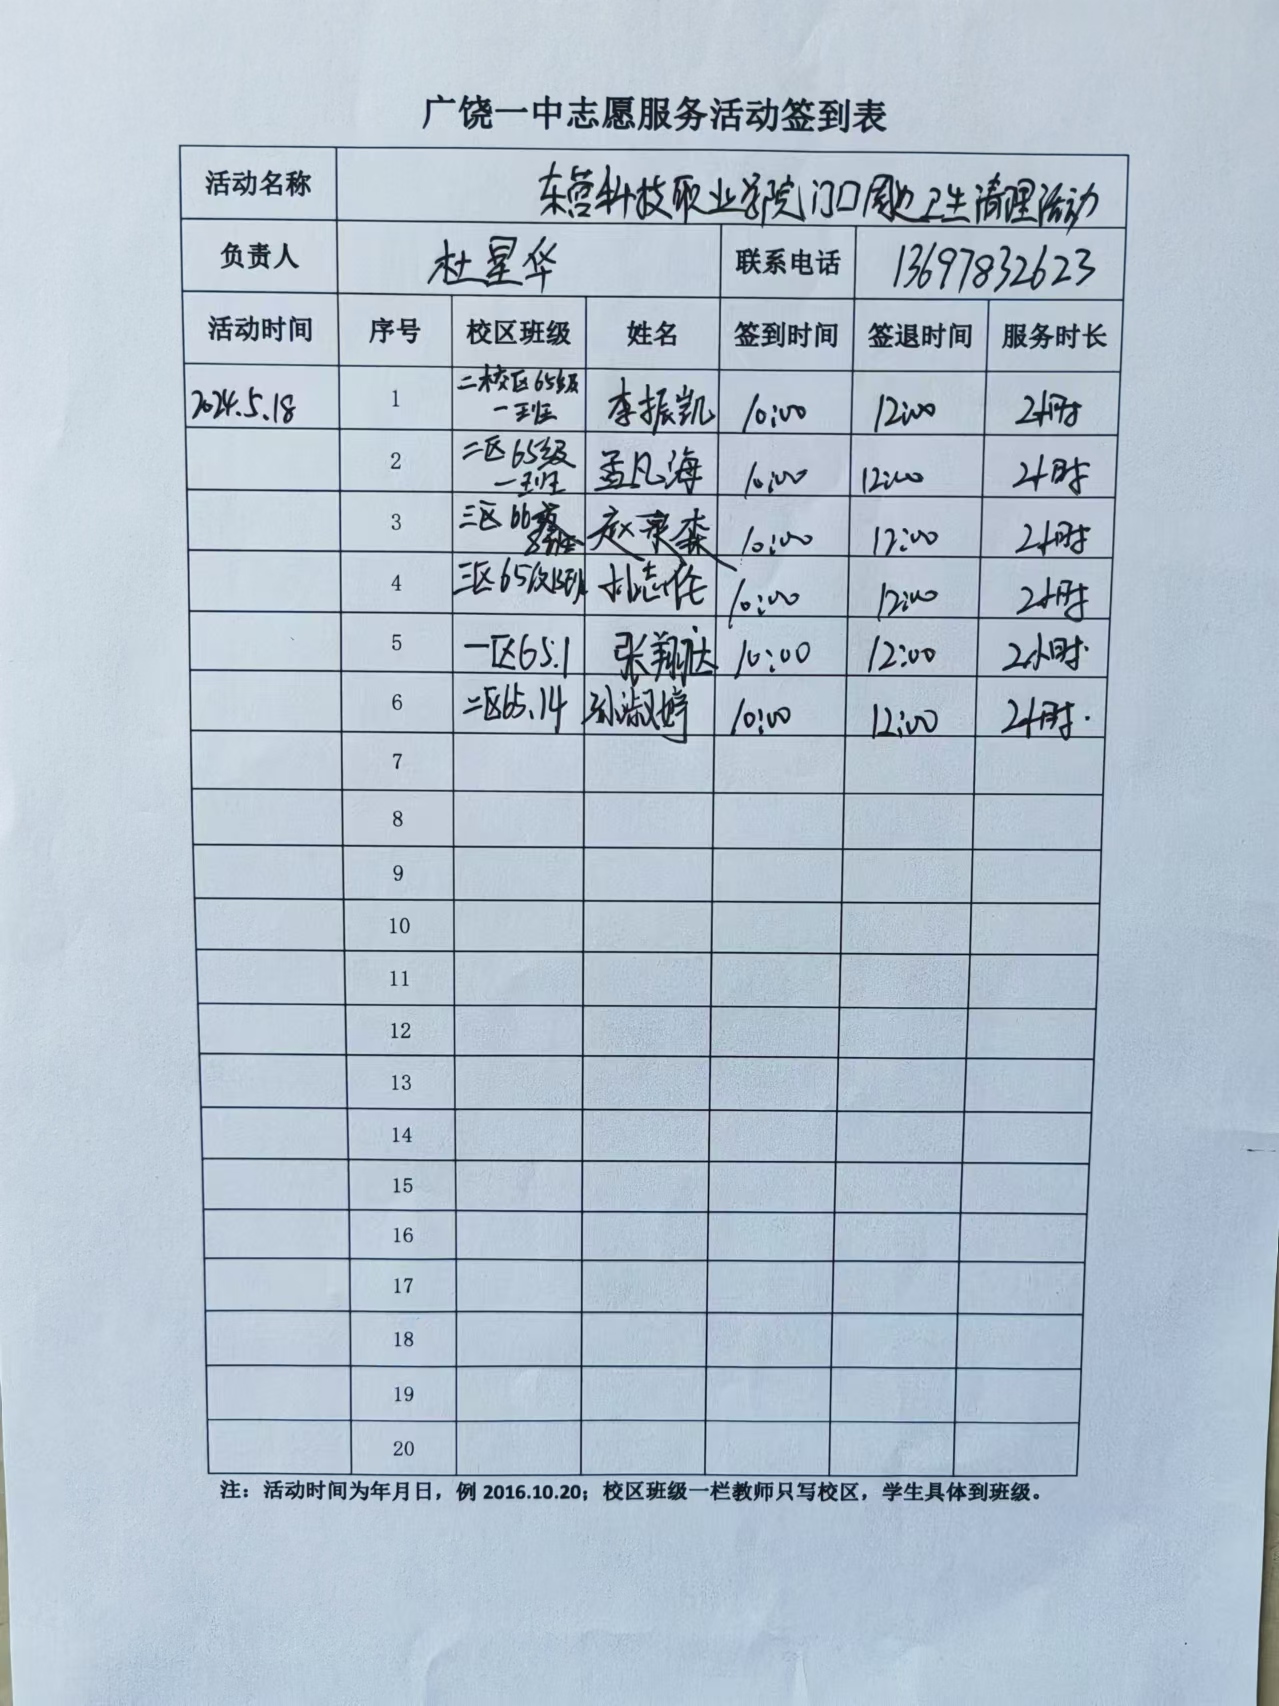 广饶一中志愿服务活动签到表
活动名称 东营科技职业学院门口周边卫生清理活动
负责人 杜星华 联系电话 13697832623
活动时间 序号 校区班级 姓名 签到时间 签退时间 服务时长
2024.5.18 1 二校区65级一班 李振凯 10:00 12:00 2小时
2 二区65级一班 孟凡海 10:00 12:00 2小时
3 三区66级 8班 赵荣森 10:00 12:00 2小时
4 三区65级 班 志伦 10:00 12:00 2小时
5 一区65.1 张翔 10:00 12:00 2小时.
6 二区65.14 孙淑婷 10:00 12:00 2小时.
7
8
9
10
11
12
13
14
15
16
17
18
19
20
注：活动时间为年月日，例 2016.10.20；校区班级一栏教师只写校区，学生具体到班级。